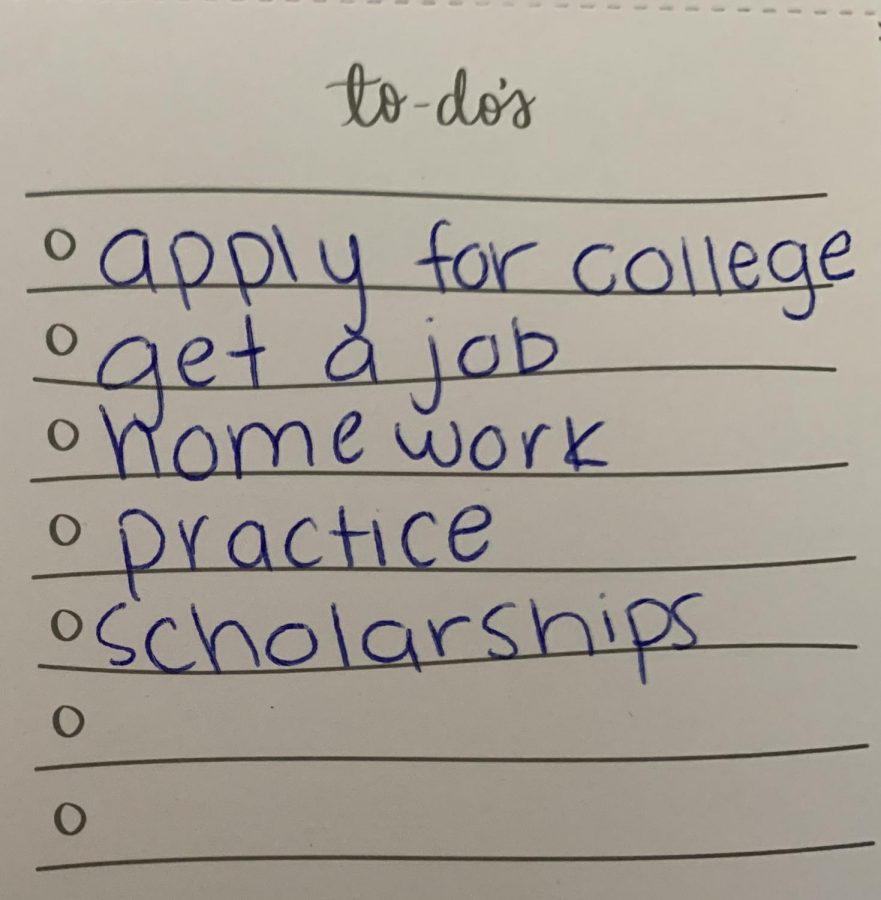 to-do's
apply for college
get a job
homework
practice
scholarships